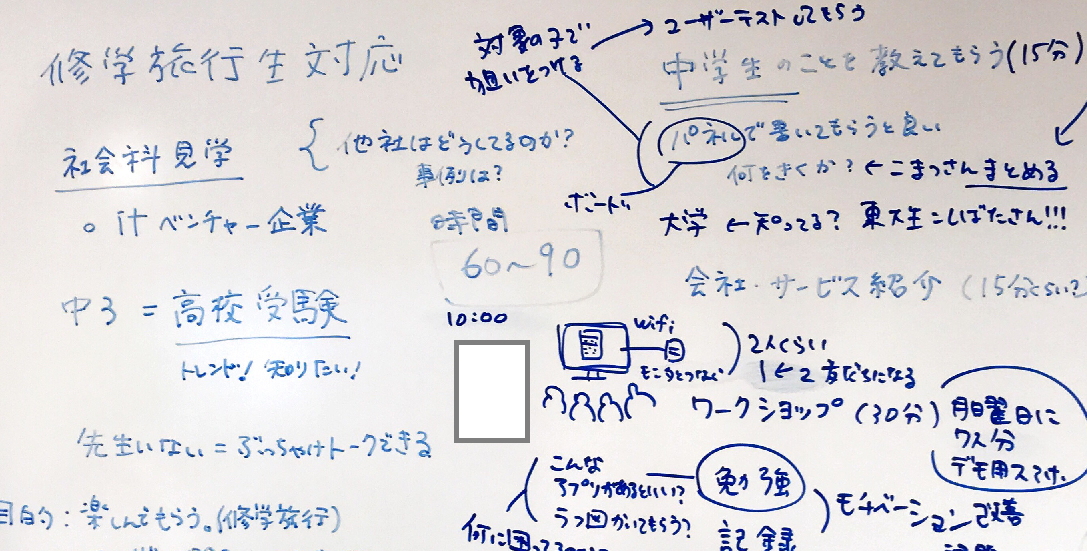 修学旅行生対応
社会科見学
他社はどうしてるのか?
事例は?
○ itベンチャー企業
時間
60〜90
中3 = 高校受験
トレンド! 知りたい!
10:00
先生いない = ぶっちゃけトークできる
目的 : 楽しんでもらう。(修学旅行)
対象の子で
狙いをつける
ユーザーテストしてもらう
中学生のことを教えてもらう(15分)
パネルで書いてもらうと良い
何をきくか? ← こまつさんまとめる
大学 ← 知ってる? 東大生 = しばたさん!!!
会社・サービス紹介 (15分くらい?)
wifi
モニタとつなぐ
2人くらい
1 ← 2 友だちになる
ワークショップ (30分)
月曜日に
7人分
デモ用
こんな
アプリがあるといい?
うつ図かいてもらう?
勉強
記録
モチベーション改善
何に困ってる